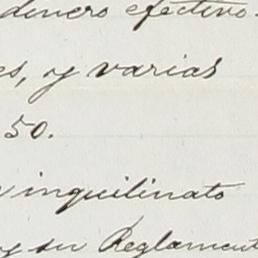 dinero efectivo.
es, y varias
50.
inquilinato
y su Reglament